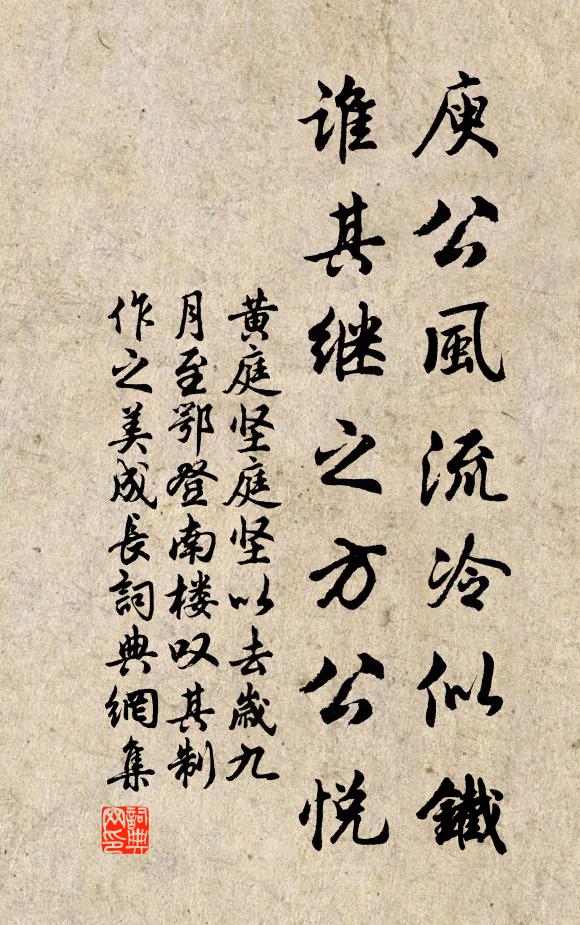 庾公風流冷似鐵
谁其继之方公悅
黄庭坚庭坚以去歲九
月至鄂登南楼叹其制
作之美成長詞典網集
詞典
网印